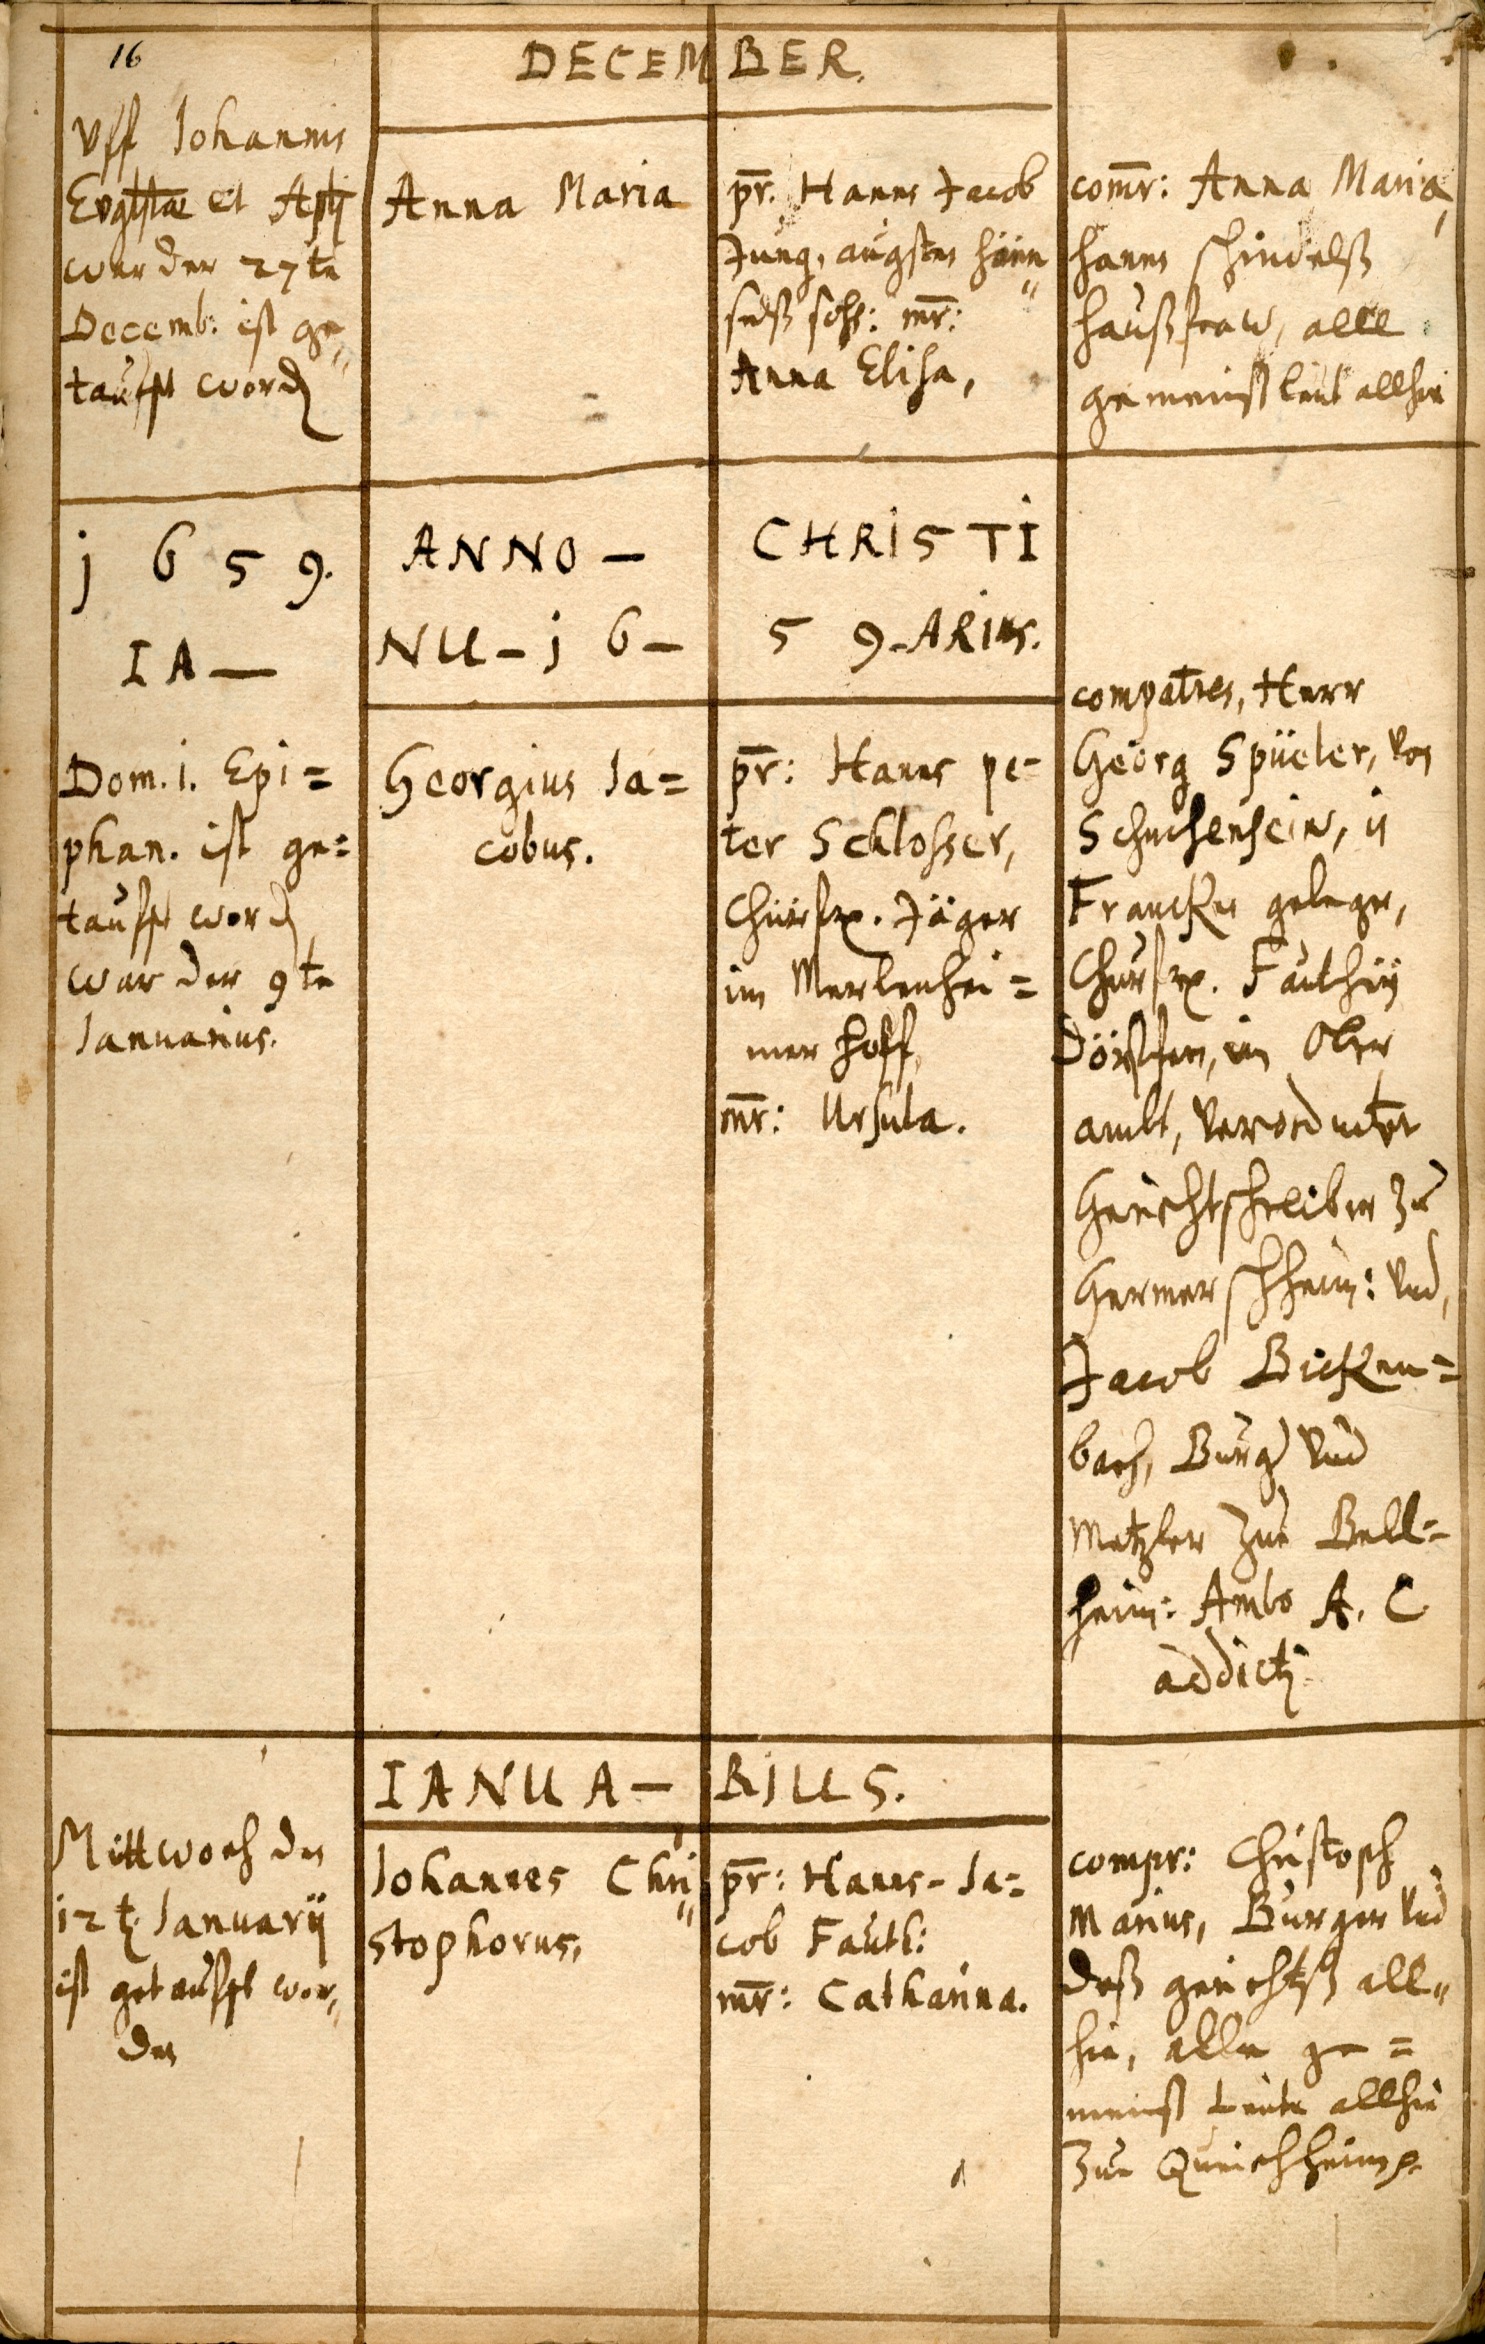 16
DECEMBER.
Vff Iohannis
Evgltæ et Aptj
war der 27te
Decemb: ist ge„
taufft word
Anna Maria
pr. Hanns Jacob
Jung, augsten
sohs: mr:
Anna Elisa,
comr: Anna Maria,
hanns schindelß
haußfraw, alle
gemeinß leut allhie
j 6 5 9. ANNO – CHRISTI
IA – NU – j 6 – 5 9 – ARIUS.
Dom. i. Epi=
phan. ist ge=
taufft word
war der 9te
Ianuarius.
Georgius Ia=
cobus.
pr: Hanns pe=
ter Schlosser,
Churfrx. Jäger
im Merlenhei=
mer hoff,
mr: Ursula.
compatres, Herr
Geörg Spüeler, von
in
Francken gelegen,
Churfrx. Fauthij
Dörffern, im Ober
ambt, verordneter
Gerichtschreiber zu
Germerschheim: vnd,
Jacob Bicken=
bach, Burg vnd
Metzler zue Bell=
heim: Ambo A. C
addictj
IANUA – RIUS.
Mittwoch den
12t Januarij
ist getaufft wor„
den
Iohannes Chri„
stophorus,
pr: Hanns-Ia=
cob Fauth:
mr: Catharina.
compr: Christoph
Marius, Burger vnd
deß gerichtß all„
hie, alle ge=
meinß leute allhie
zue Queichheimx.